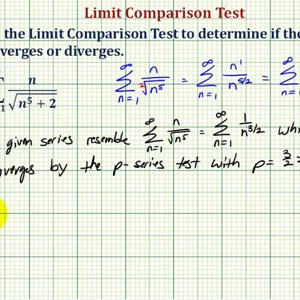 Limit Comparison Test
the Limit Comparison Test to determine if the
verges or diverges.
n / √(n⁵ + 2)
∞ Σ n=1 n / ²√n⁵ = ∞ Σ n=1 n¹ / n^(5/2) = ∞ Σ n=1
given series resemble ∞ Σ n=1 n / √n⁵ = ∞ Σ n=1 1 / n^(3/2)
verges by the p-series test with p = 3/2 =